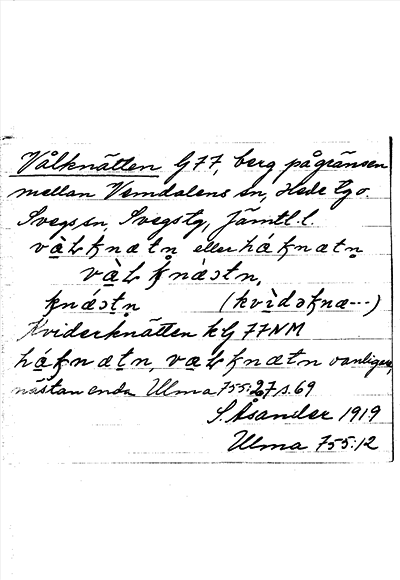 Vålknätten G77, berg på gränsen
mellan Vemdalens sn, Hede tg o.
Svegs sn, Svegs tg, Jämtl. l.
và̱Ƚꞣnæt̲n̥ eller há̱ꞣnætn̥
và̱Ƚꞣnǽstn̥,
ꞣnǽst̲n̥ (kvìdəꞣnæ---)
Kviderknätten kG 77NM
há̱ꞣnæt̲n, væ̱Ƚꞣnæt̲n vanligen,
nästan enda Ulma 755:27 s. 69
S. Åsander 1919
Ulma 755:12